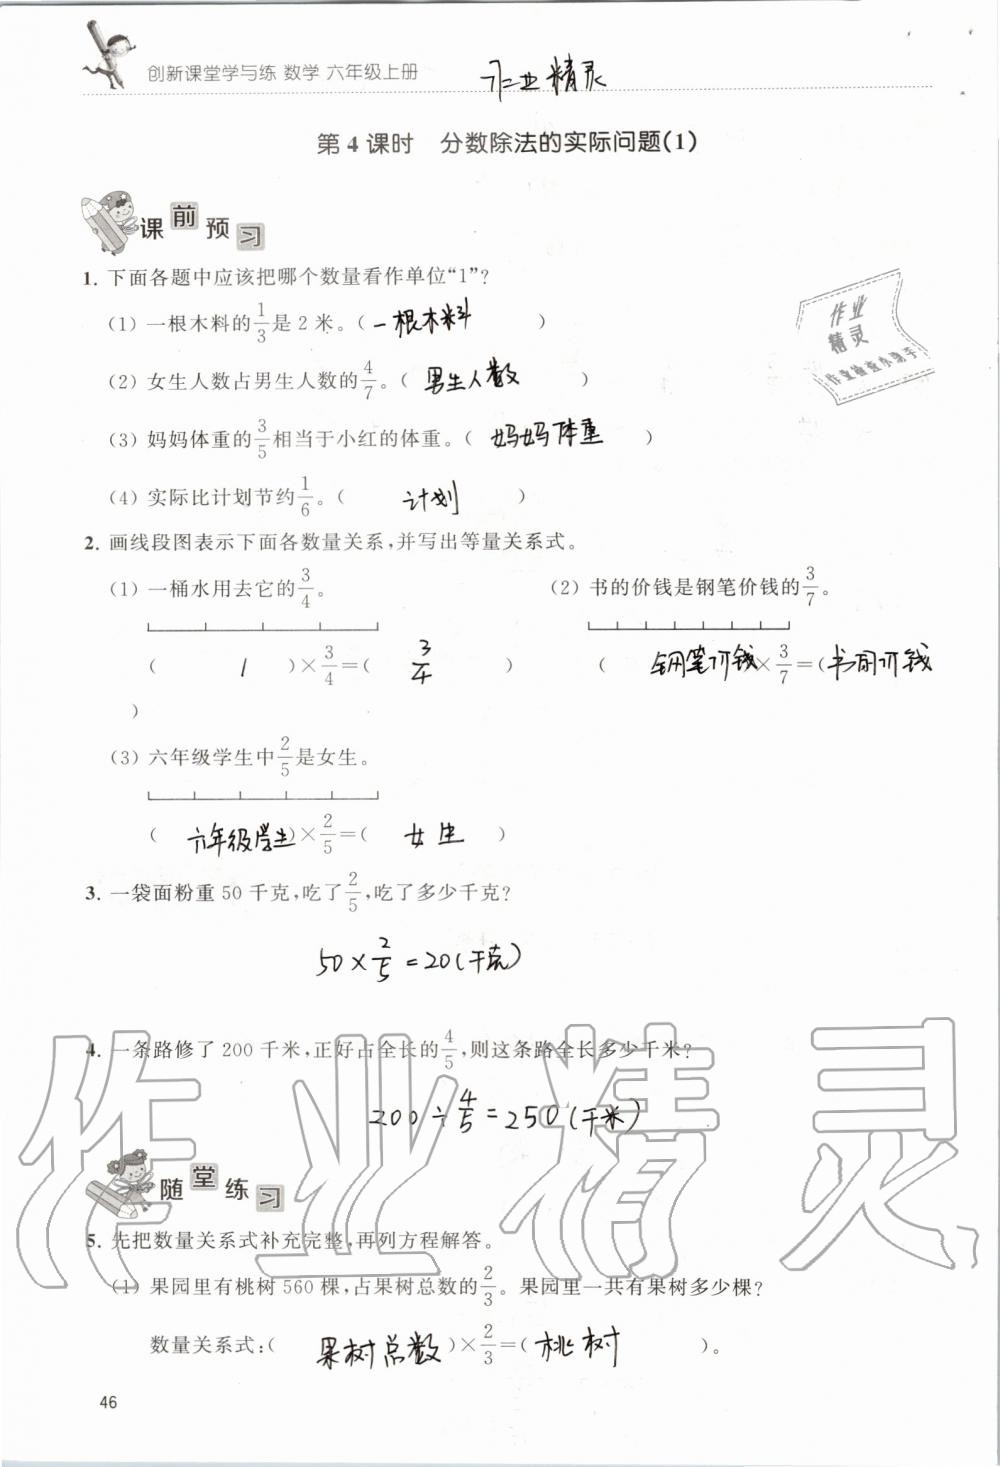 创新课堂学与练 数学 六年级上册
作业精灵
第4课时 分数除法的实际问题(1)
课前预习
1. 下面各题中应该把哪个数量看作单位“1”?
(1) 一根木料的1/3是2米。(一根木料)
作业
精灵
作业检查小助手
(2) 女生人数占男生人数的4/7。(男生人数)
(3) 妈妈体重的3/5相当于小红的体重。(妈妈体重)
(4) 实际比计划节约1/6。(计划)
2. 画线段图表示下面各数量关系,并写出等量关系式。
(1) 一桶水用去它的3/4。
(2) 书的价钱是钢笔价钱的3/7。
(1)×3/4=(3/4)
(钢笔价钱×3/7=(书的价钱
)
(3) 六年级学生中2/5是女生。
(六年级学生)×2/5=(女生)
3. 一袋面粉重50千克,吃了2/5,吃了多少千克?
50×2/5=20(千克)
4. 一条路修了200千米,正好占全长的4/5,则这条路全长多少千米?
200÷4/5=250(千米)
作业精灵
随堂练习
5. 先把数量关系式补充完整,再列方程解答。
(1) 果园里有桃树560棵,占果树总数的2/3。果园里一共有果树多少棵?
数量关系式:(果树总数)×2/3=(桃树)。
46